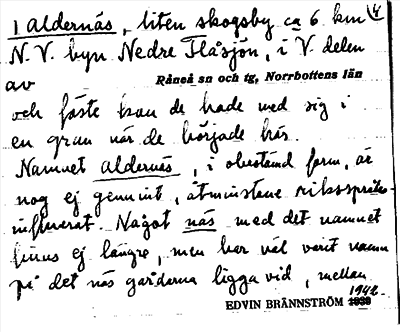 1 aldernäs, liten skogsby ca 6 km (4
N.V. byn Nedre Flåsjön, i V. delen
av
Råneå sn och tg, Norrbottens län
och fäste han de hade med sig i
en gran när de började här.
Namnet aldernäs, i obestämd form, är
nog ej genuint, åtminstone riksspråks-
influerat. Något näs med det namnet
finns ej längre, men har väl varit namn
på det näs gårdarna ligga vid, mellan
EDVIN BRÄNNSTRÖM 1942